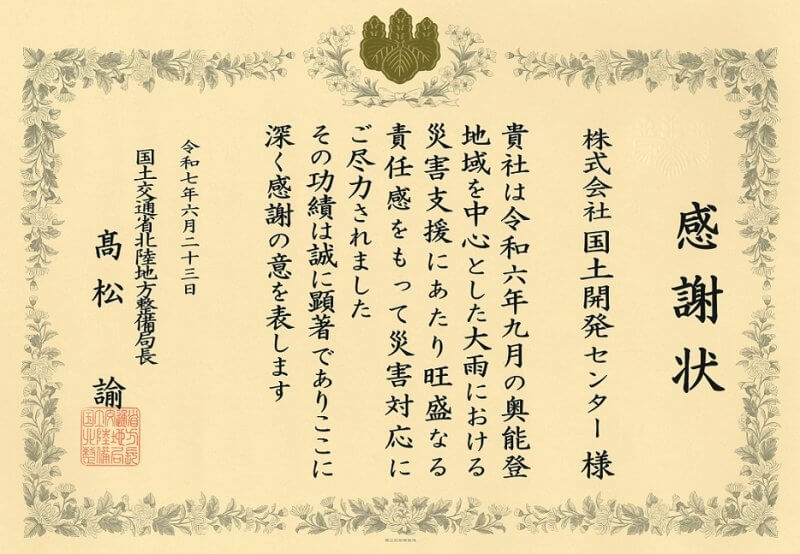 感謝状
株式会社 国土開発センター 様
貴社は令和六年九月の奥能登
地域を中心とした大雨における
災害支援にあたり旺盛なる
責任感をもって災害対応に
ご尽力されました
その功績は誠に顕著でありここに
深く感謝の意を表します
令和七年六月二十三日
国土交通省北陸地方整備局長
髙松 諭